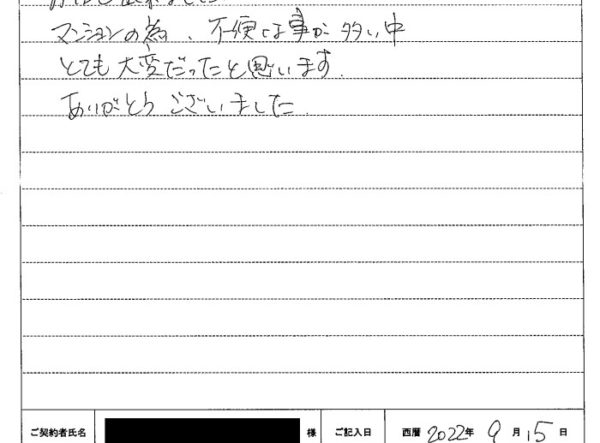 マンションの為、不便な事が多い中
とても大変だったと思います.
ありがとうございました.
ご契約者氏名 様 ご記入日 西暦 2022年 9月15日